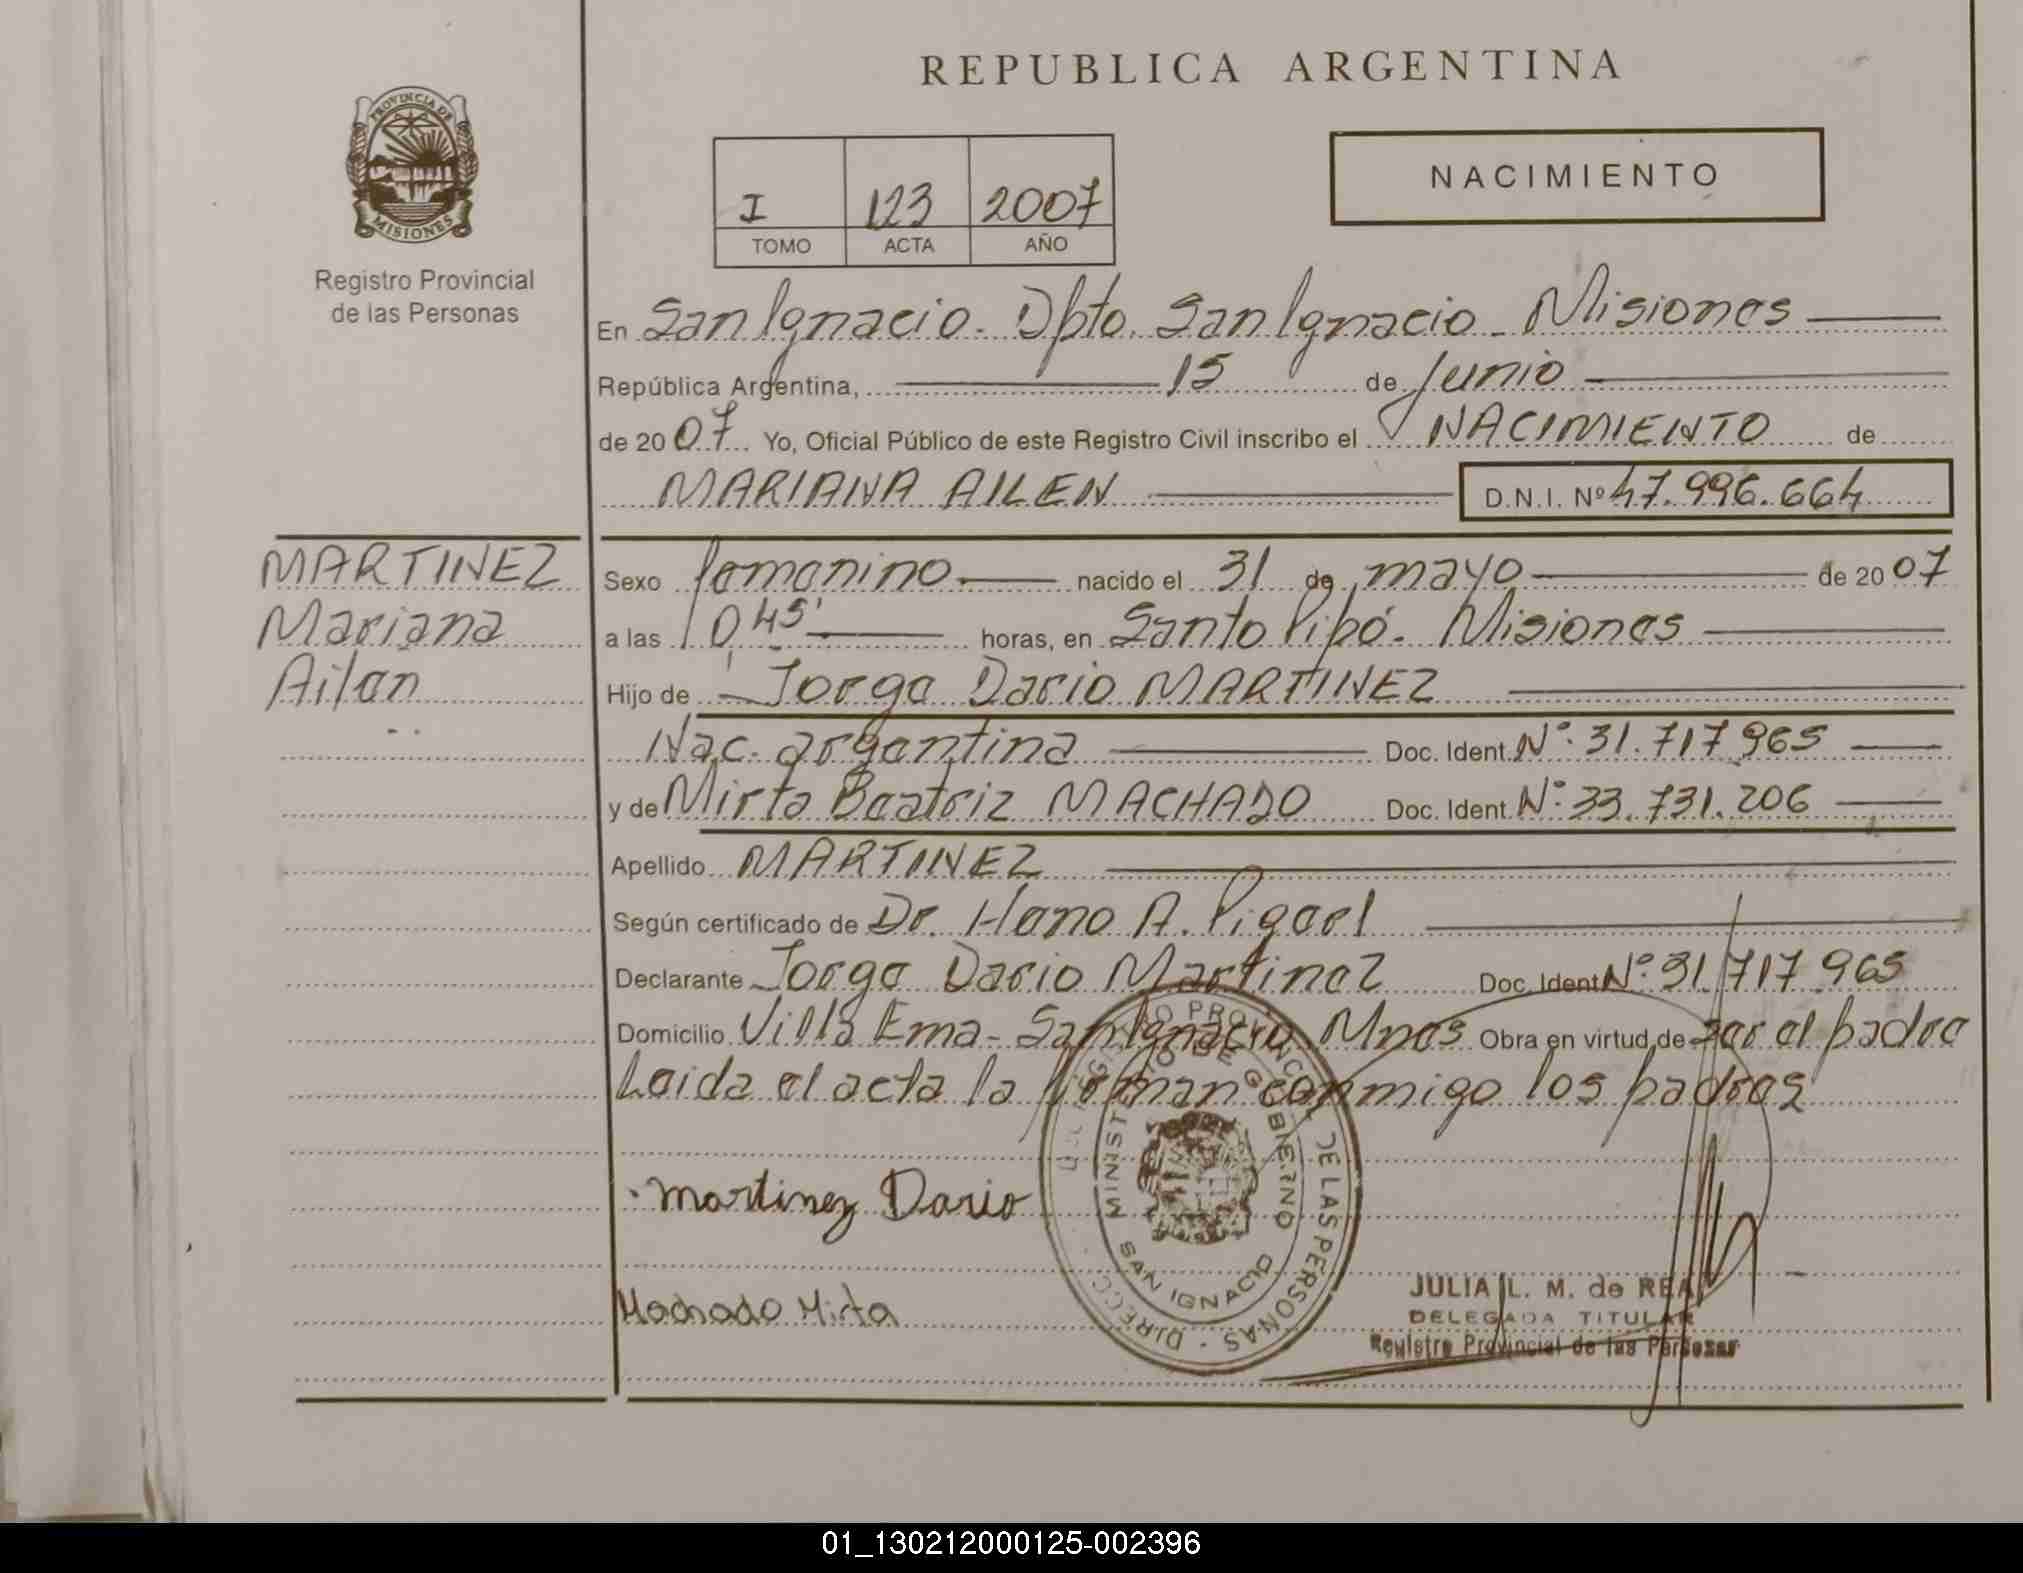 REPUBLICA ARGENTINA
PROVINCIA DE MISIONES
Registro Provincial
de las Personas
I 123 2007
TOMO ACTA AÑO
NACIMIENTO
En San Ignacio. Dpto. San Ignacio - Misiones
República Argentina, 15 de Junio
de 2007 Yo, Oficial Público de este Registro Civil inscribo el NACIMIENTO de
MARIANA AILEN D.N.I. Nº 47.996.664
MARTINEZ
Mariana
Ailen
Sexo femenino nacido el 31 de mayo de 2007
a las 10,45' horas, en Santo Pipó. Misiones
Hijo de Jorge Dario MARTINEZ
Nac. argentina Doc. Ident. Nº: 31.717.965
y de Mirta Beatriz MACHADO Doc. Ident. Nº: 33.731.206
Apellido MARTINEZ
Según certificado de Dr. A.
Declarante Jorge Dario Martinez Doc. Ident Nº: 31.717.965
Domicilio Villa Ema - San Ignacio. Mnes Obra en virtud de ser el padre
Leida el acta la firman conmigo los padres
Martinez Dario
Machado Mirta
DIRECC. REGISTRO PROVINCIAL DE LAS PERSONAS
MINISTERIO DE GOBIERNO
SAN IGNACIO
JULIA L. M. de REA
DELEGADA TITULAR
Registro Provincial de las Personas
01_130212000125-002396